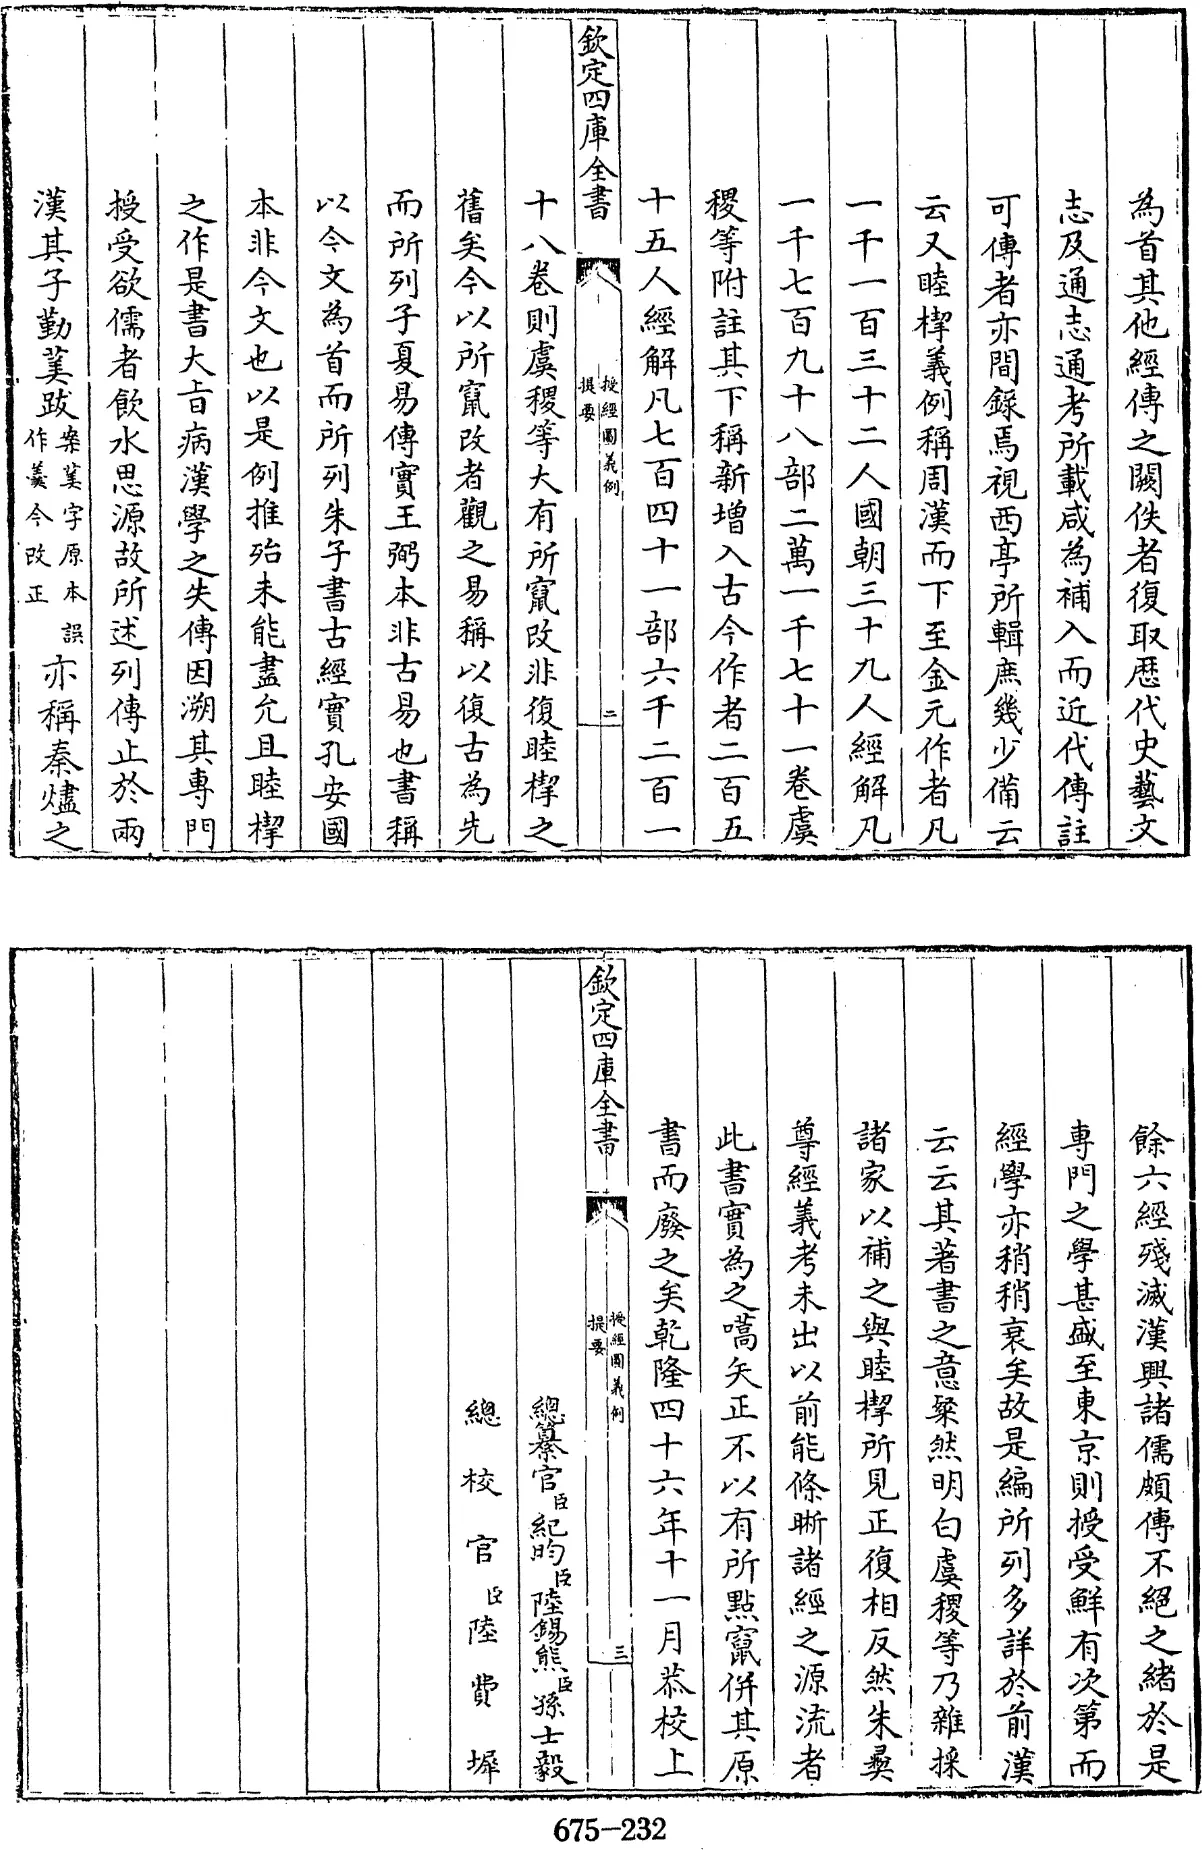 為首其他經傳之闕佚者復取歴代史藝文
志及通志通考所載咸為補入而近代傳註
可傳者亦間錄焉視西亭所輯庶幾少備云
云又睦㮮義例稱周漢而下至金元作者凡
一千一百三十二人國朝三十九人經解凡
一千七百九十八部二萬一千七十一卷虞
稷等附註其下稱新增入古今作者二百五
十五人經解凡七百四十一部六千二百一
欽定四庫全書
授經圖義例
提要
二
十八卷則虞稷等大有所竄改非復睦㮮之
舊矣今以所竄改者觀之易稱以復古為先
而所列子夏易傳實王弼本非古易也書稱
以今文為首而所列朱子書古經實孔安國
本非今文也以是例推殆未能盡允且睦㮮
之作是書大旨病漢學之失傳因溯其專門
授受欲儒者飲水思源故所述列傳止於兩
漢其子勤羙跋案羙字原本誤作羲今改正亦稱秦燼之
餘六經殘滅漢興諸儒頗傳不絕之緒於是
專門之學甚盛至東京則授受鮮有次第而
經學亦稍稍衰矣故是編所列多詳於前漢
云云其著書之意粲然明白虞稷等乃雜採
諸家以補之與睦㮮所見正復相反然朱彝
尊經義考未出以前能條晰諸經之源流者
此書實為之嚆矢正不以有所點竄併其原
書而廢之矣乾隆四十六年十一月恭校上
欽定四庫全書
授經圖義例
提要
三
總纂官臣紀昀臣陸錫熊臣孫士毅
總校官臣陸費墀
675-232